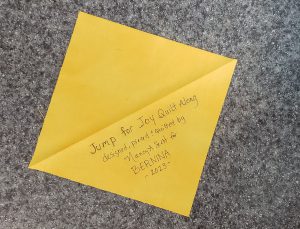 Jump for Joy Quilt Along
designed, pieced + quilted by
Nancy Scott for
BERNINA
- 2023 -